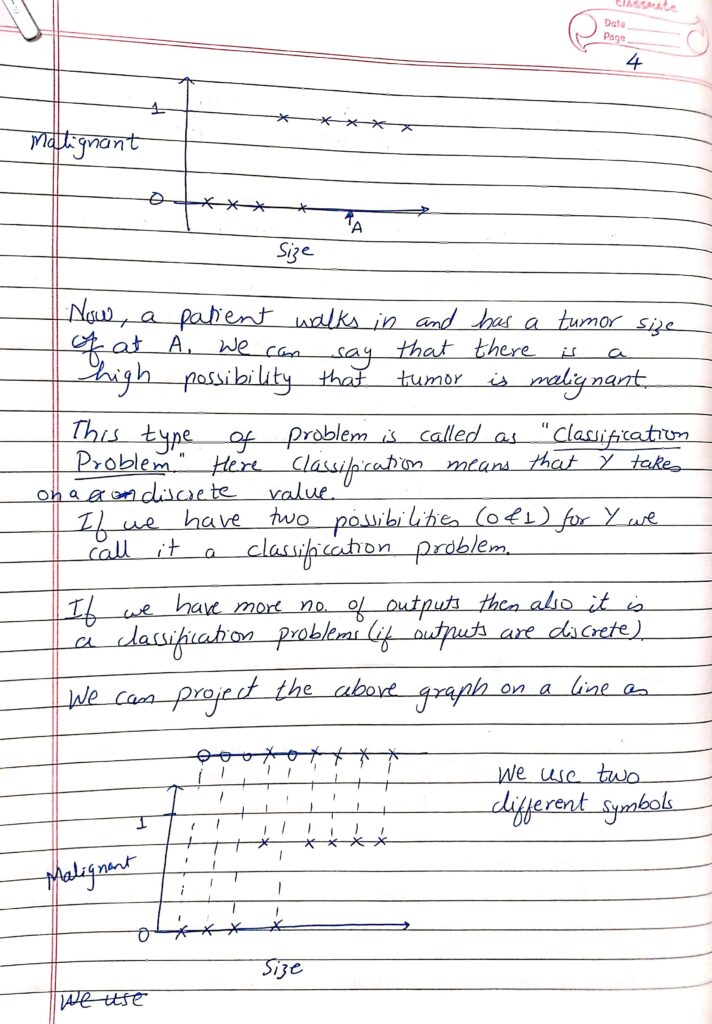 classmate
Date
Page
4
1
Malignant
0
A
Size
Now, a patient walks in and has a tumor size
of at A. We can say that there is a
high possibility that tumor is malignant.
This type of problem is called as "Classification
Problem." Here classification means that Y takes
on a discrete value.
If we have two possibilities (0 & 1) for Y we
call it a classification problem.
If we have more no. of outputs then also it is
a classification problems (if outputs are discrete).
We can project the above graph on a line as
We use two
different symbols
1
Malignant
0
Size
We use